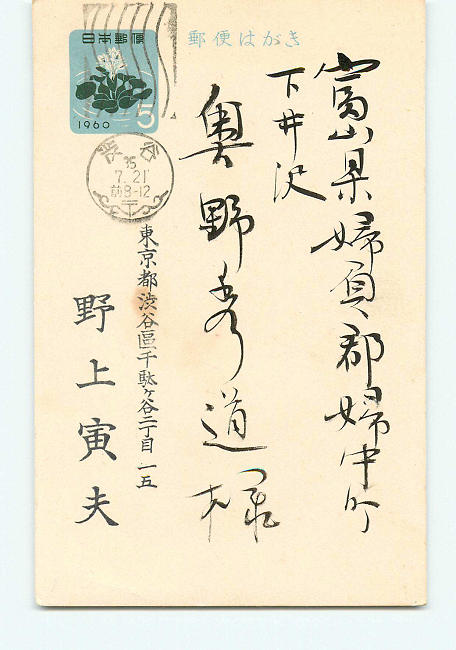 郵便はがき
日本郵便
1960
5
渋谷
35
7.21
前8-12
富山県婦負郡婦中町
下井沢
奥野秀道様
東京都渋谷區千駄ヶ谷二丁目一五
野上寅夫